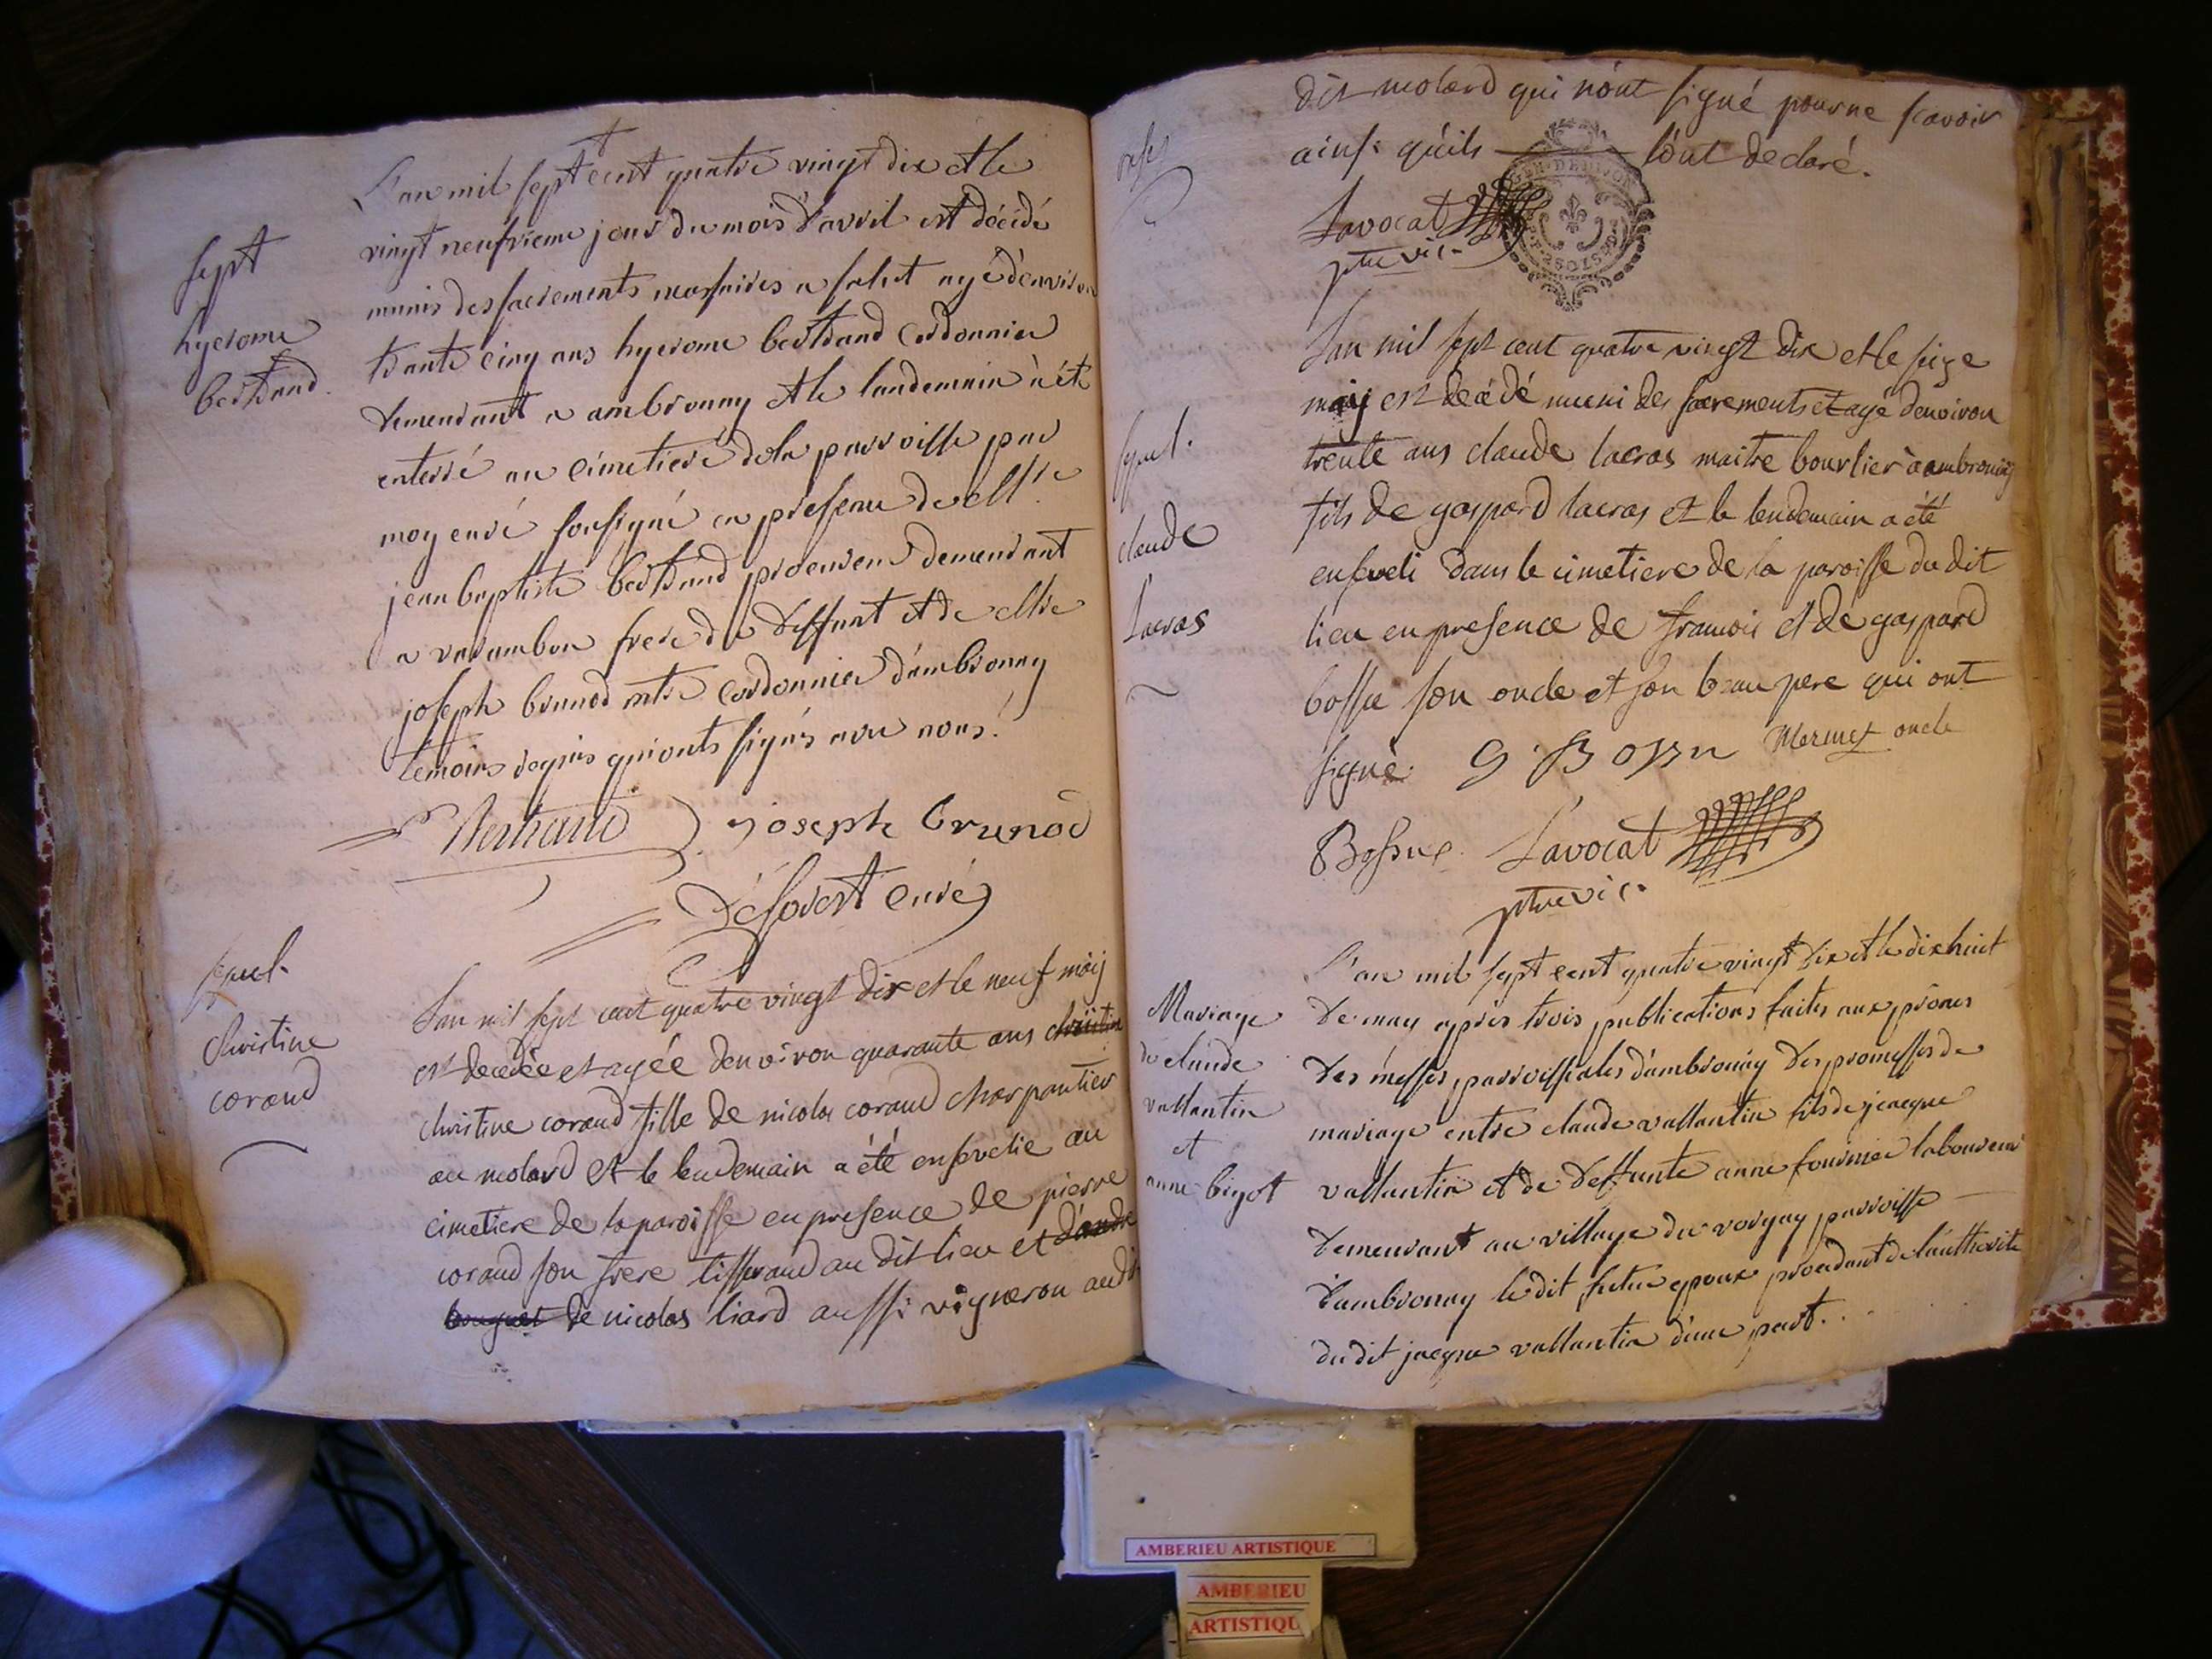 L'an mil sept cent quatre vingt dix et le
vingt neufvieme jour du mois d'avril est décédé
munis des sacrements nessaires a salut agé d'environ
trante cinq ans hyerome bertrand cordonnier
demeurant a ambronay et le landemain à été
enterré au cimetiere de la parroisse par
moy curé sousigné en presence de
jean baptiste bertrand procureur demeurant
a varambon frere du deffunt et de
joseph brunod cordonnier d'ambronay
temoins requis qui onts signés avec nous.
sept
hyerome
bertrand.
Bertrand joseph brunod
curé
sepul.
christine
coraud
L'an mil sept cent quatre vingt dix et le neuf maij
est decedée et agée d'environ quarante ans
christine coraud fille de nicolas coraud charpantier
au molard et le lendemain a été ensevelie au
cimetiere de la paroisse en presence de pierre
coraud son frere tisserand au dit lieu et
de nicolas liard aussi vigneron audit
dit molard qui n'ont signé pour ne scavoir
ainsi qu'ils l'ont declaré.
Lavocat
ptre vic.
L'an mil sept cent quatre vingt dix et le seize
maij est decédé muni des sacrements et agé d'environ
trente ans claude lacras maitre bourlier à ambronaij
fils de gaspard lacras et le lendemain a été
enseveli dans le cimetiere de la paroisse du dit
lieu en presence de francois et de gaspard
bossu son oncle et son beau pere qui ont
signé. G Bossu Mermet oncle
Bossue. Lavocat
ptre vic.
sepul.
claude
Lacras
L'an mil sept cent quatre vingt dix et le dixhuit
de may après trois publications faites aux prônes
des messes parroissiales d'ambronay des promesses de
mariage entre claude vallantin fils de jacque
vallantin et de deffunte anne fournier laboureur
demeurant au village du vorgey parroisse
d'ambronay le dit futur epoux procedant de l'authorité
du dit jacque vallantin d'une part.
Mariage
de claude
vallantin
et
anne bigot
AMBERIEU ARTISTIQUE
AMBERIEU
ARTISTIQU